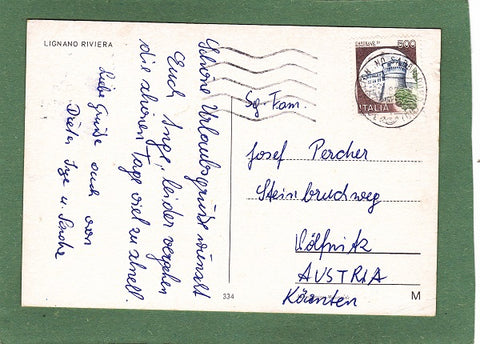 LIGNANO RIVIERA
Schöne Urlaubsgrüße wünscht
Euch Inge, leider vergehen
die schönen Tage viel zu schnell.
Liebe Grüße auch von
Dieter, Inge u. Sascha
500
ITALIA
Sg. Fam.
Josef Percher
Steinbruchweg
Wölfnitz
AUSTRIA
Kärnten
334
M